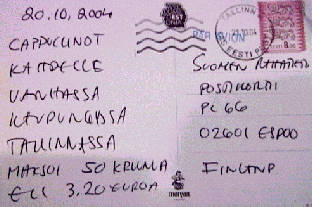 20.10.2004
CAPPUCINOT
KAHDELLE
VANHASSA
KAUPUNGISSA
TALLINNASSA
MAKSOI 50 KRUUNUA
ELI 3.20 EUROA
TALLINN
EESTI
SUOMEN
PL 66
02601 ESPOO
FINLAND